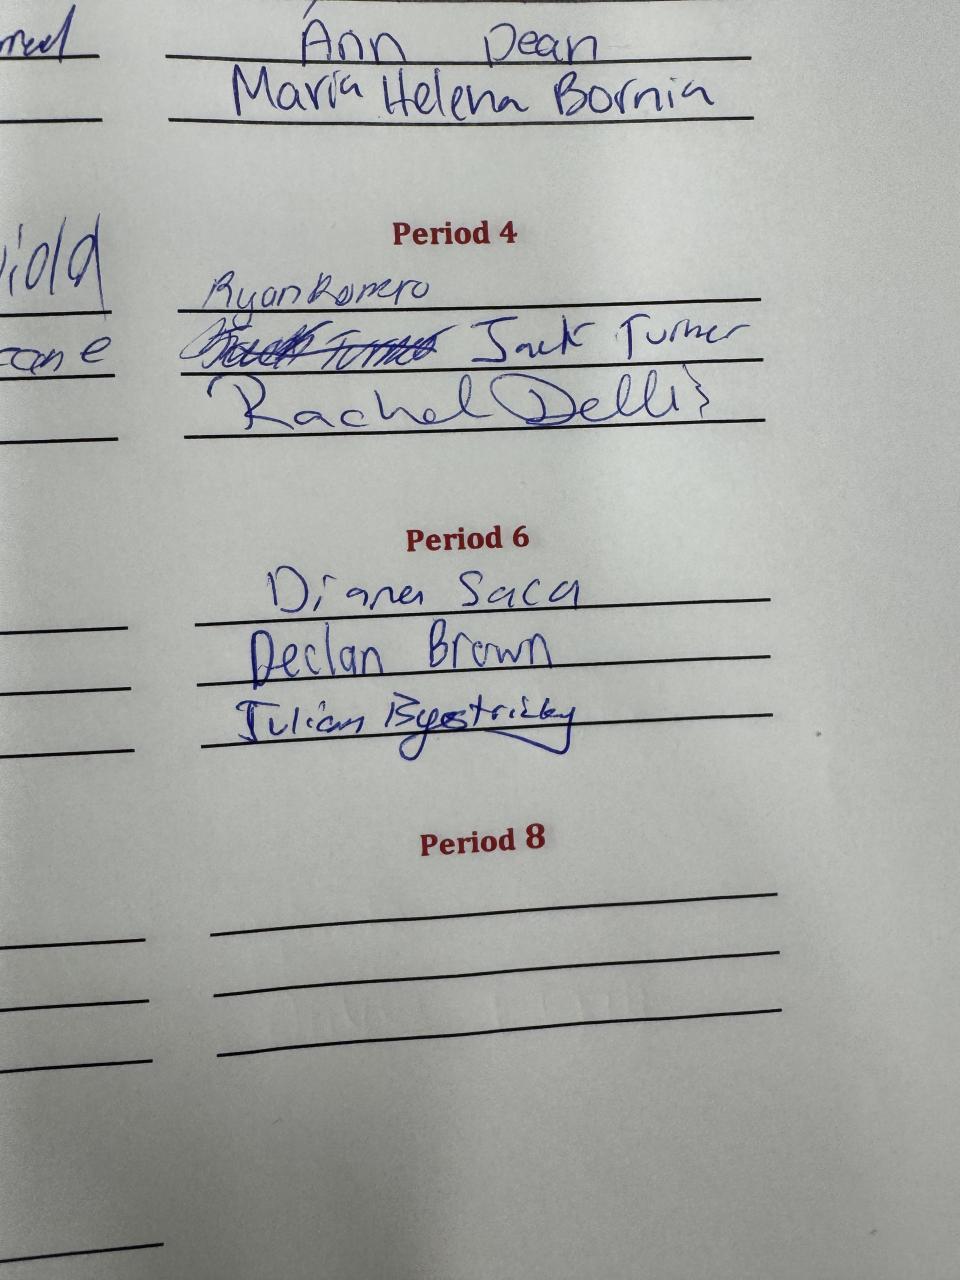 Ann Dean
Maria Helena Bornia
Period 4
Ryan Romero
Jack Turner Jack Turner
Rachel Dellis
Period 6
Diana Saca
Declan Brown
Julian Byestricky
Period 8